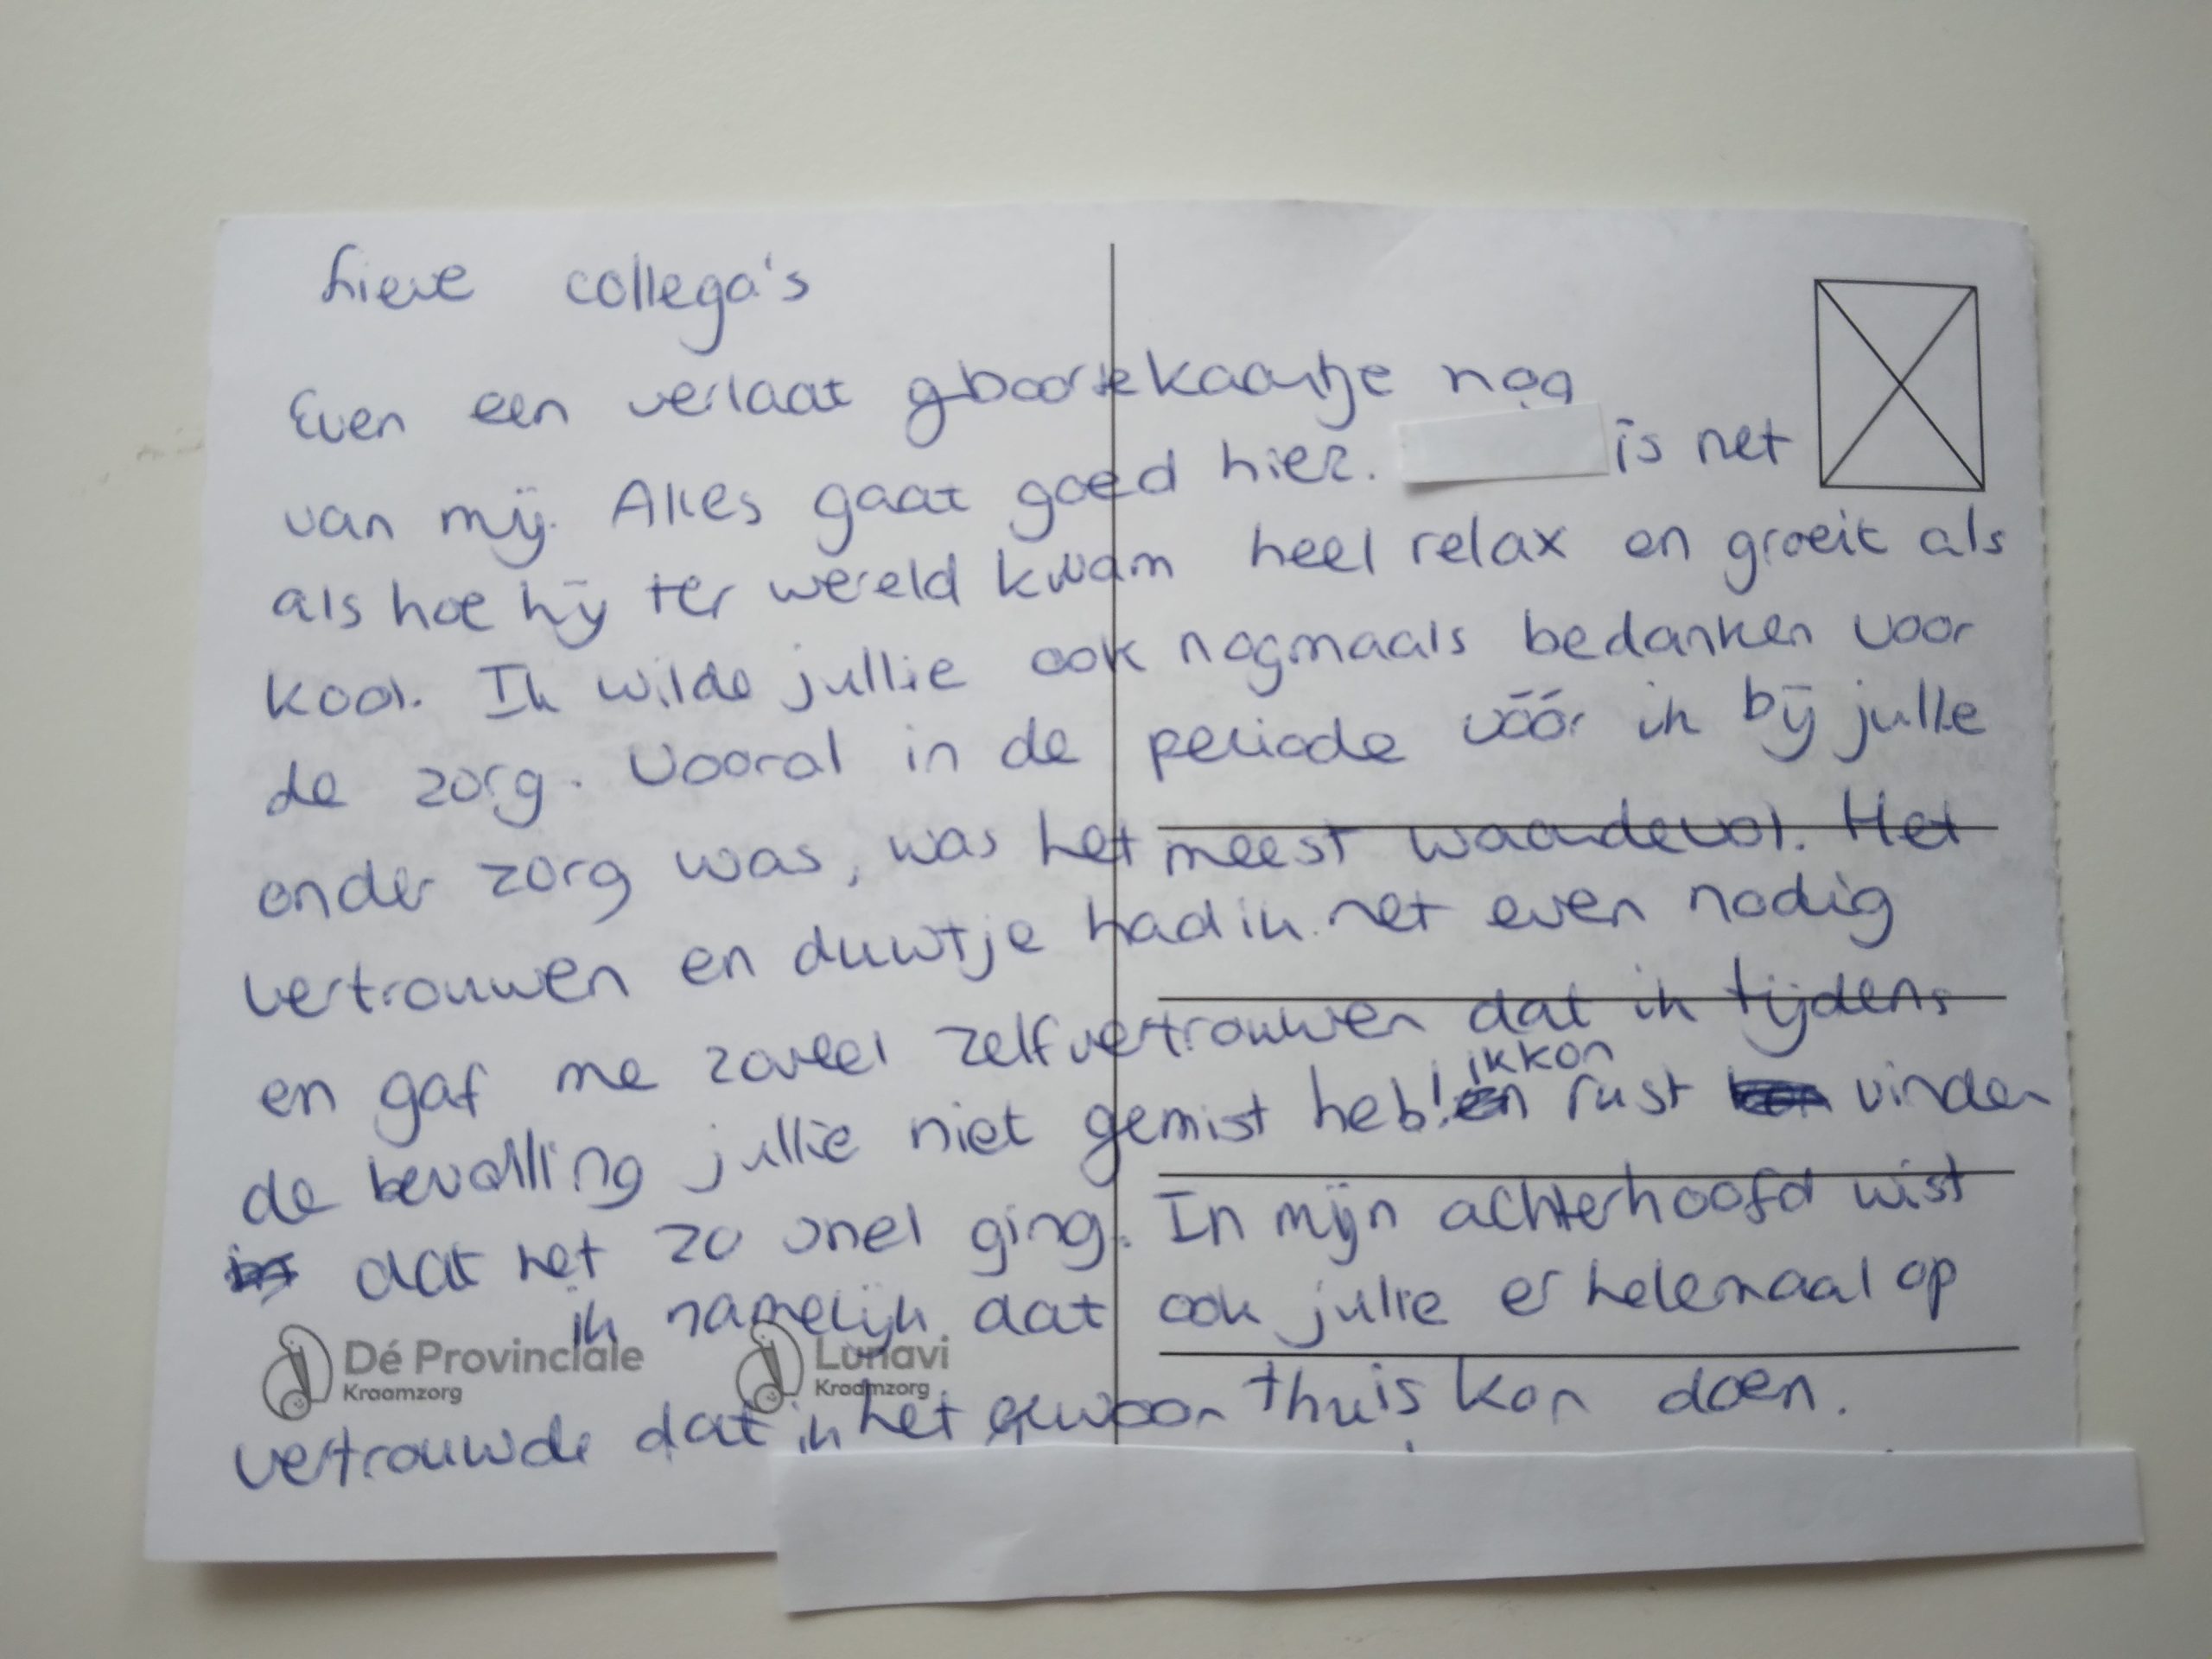 Lieve collega's
Even een verlaat gboortekaartje nog
van mij. Alles gaat goed hier. is net
als hoe hij ter wereld kwam heel relax en groeit als
kool. Ik wilde jullie ook nogmaals bedanken voor
de zorg. Vooral in de periode vóór ik bij julle
onder zorg was, was het meest waardevol. Het
vertrouwen en duwtje had ik net even nodig
en gaf me zoveel zelfvertrouwen dat ik tijdens
de bevalling jullie niet gemist heb! ik kon rust vinden
dat het zo snel ging. In mijn achterhoofd wist
ik namelijk dat ook julie er helemaal op
Dé Provinciale Kraamzorg
Lunavi Kraamzorg
vertrouwde dat ik het gewoon thuis kon doen.